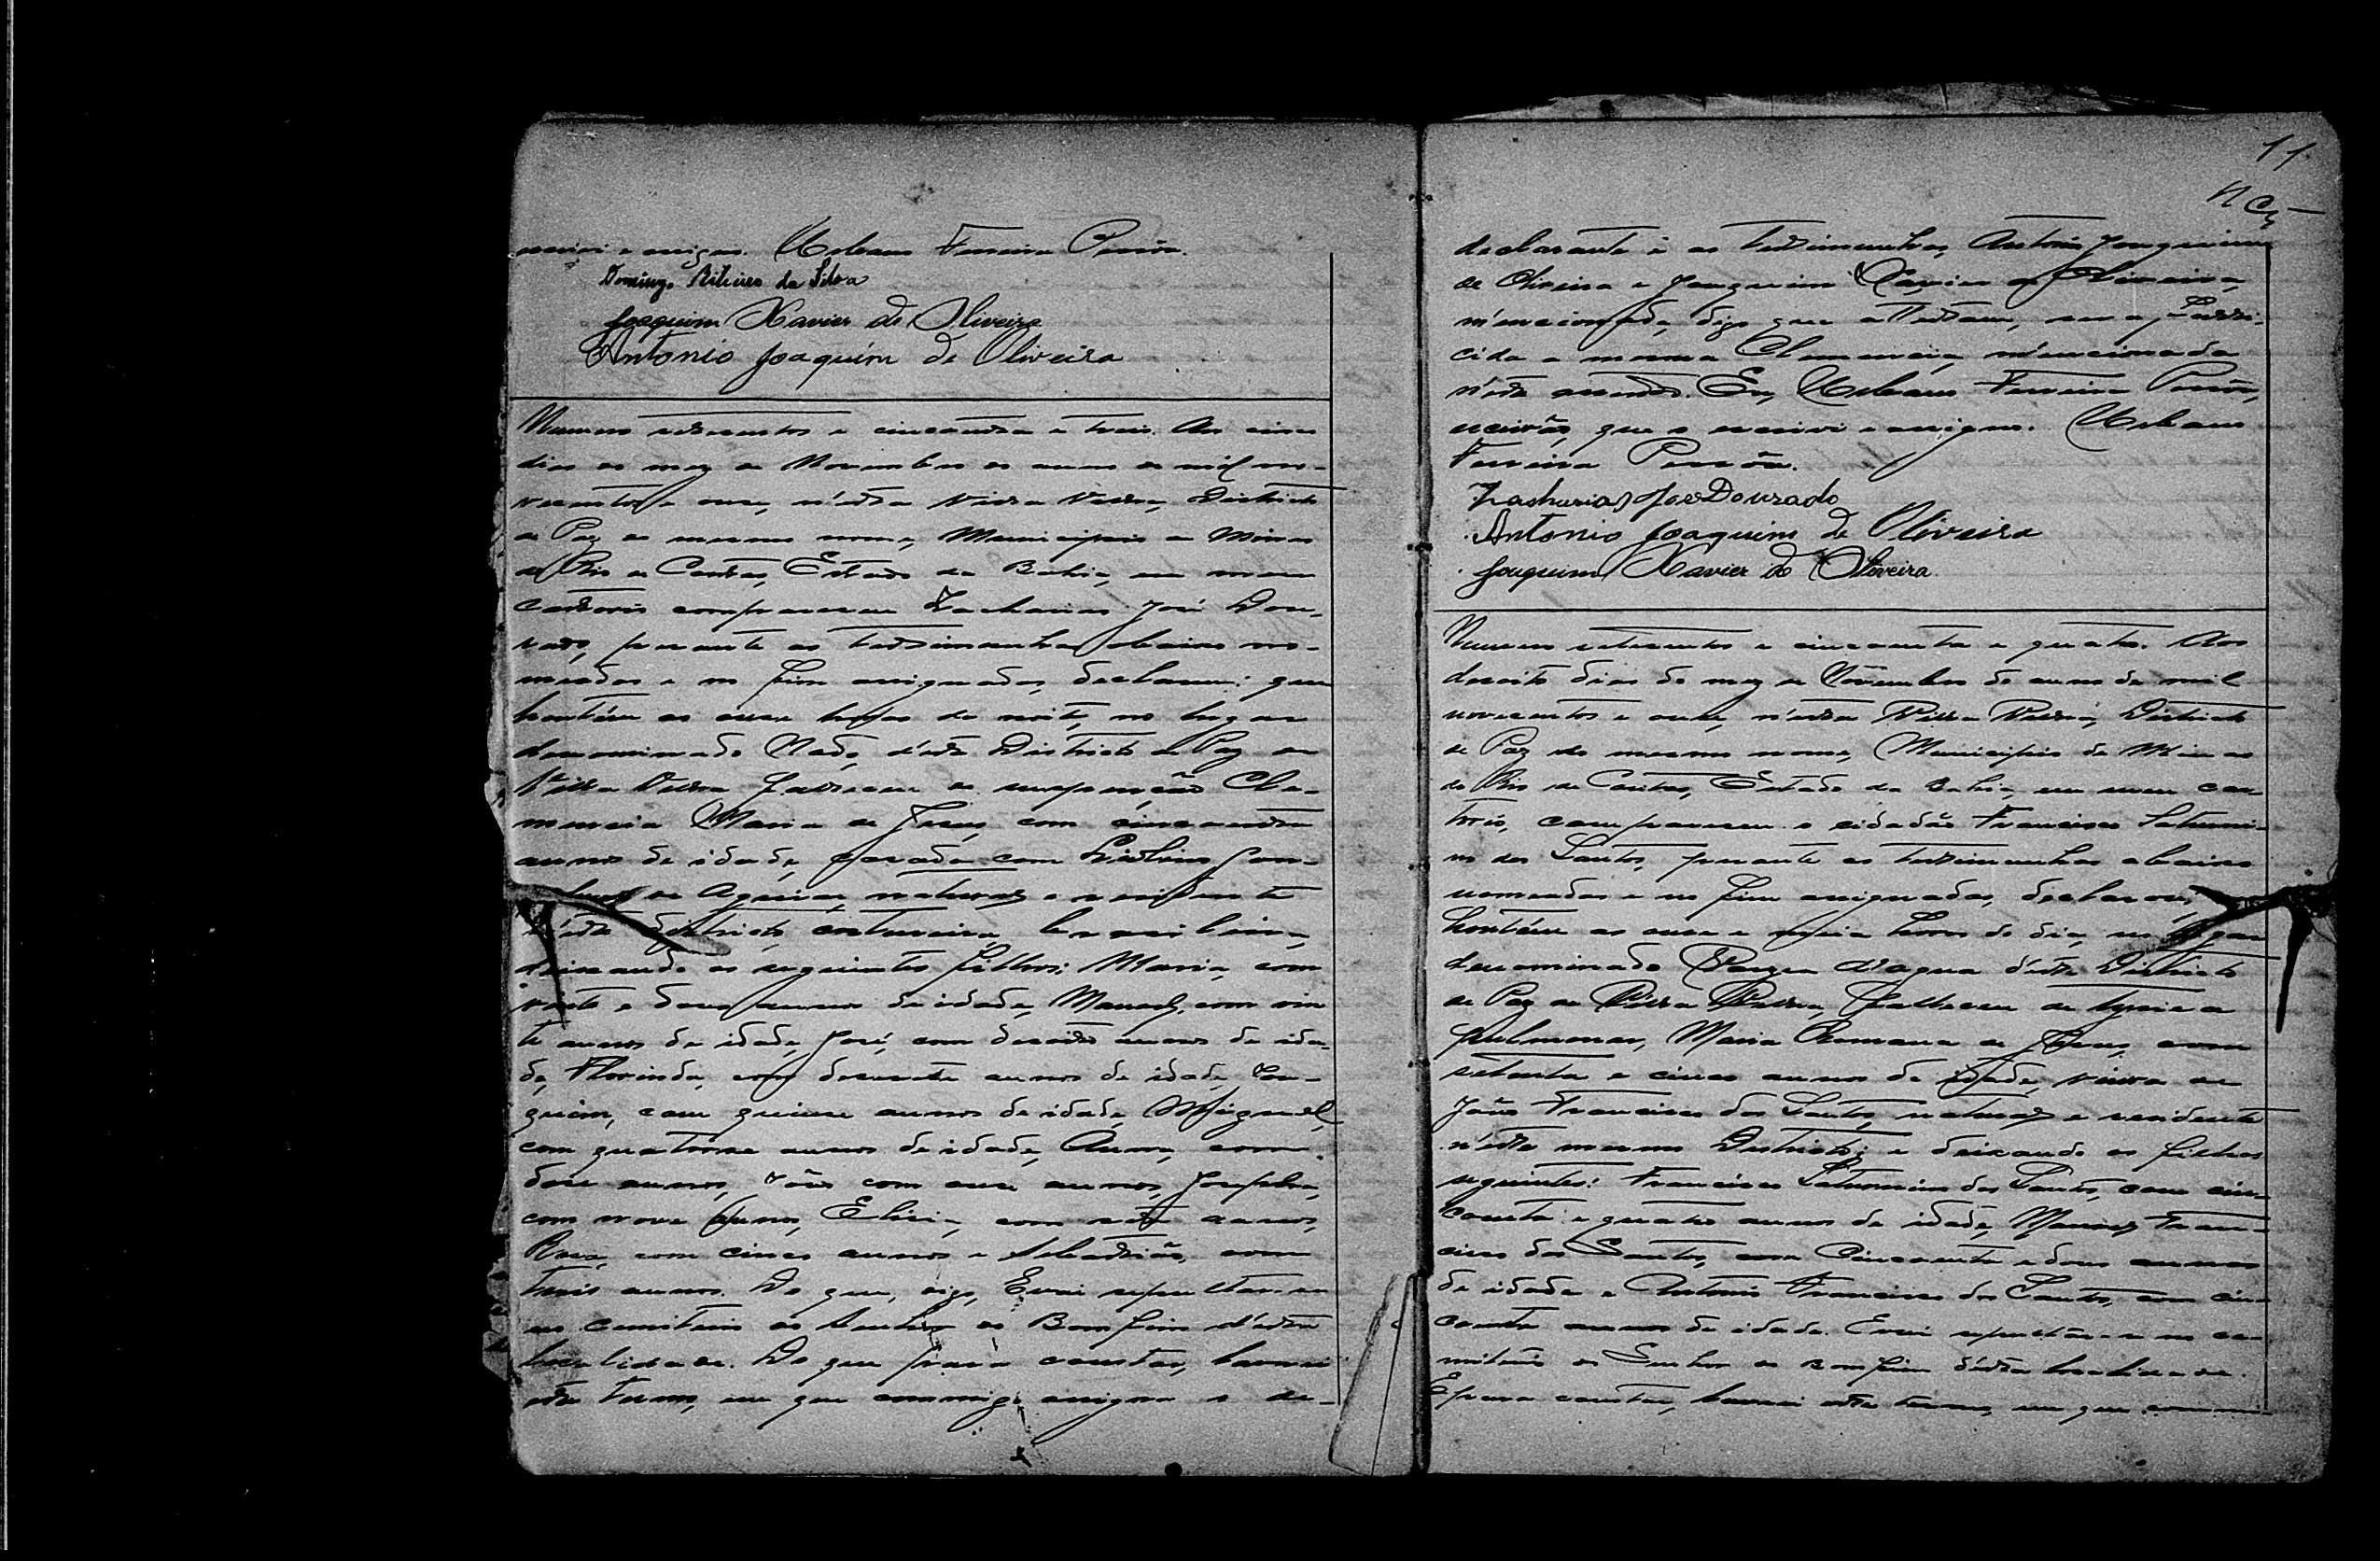 escrivi e assigno. Urbano Ferreira Pessôa.
Domingo Ribeiro da Silva
Joaquim Xavier de Oliveira
Antonio Joaquim de Oliveira
Numero setescentos e cincoenta e tres. Aos cinco
dias do mez de Novembro do anno de mil no-
vecentos e onze, n'esta Villa Velha, Districto
de Paz do mesmo nome, Municipio de Minas
do Rio de Contas, Estado da Bahia, em meu
cartorio compareceu Zacharias José Dou-
rado, perante as testimunhas abaixo no-
meadas e no fim assignadas, declarou: que
hontem as onze horas da noite, no lugar
denominado d'este Districto de Paz de
Villa Velha falleceu de suspenção Cle-
mencia Maria de Jesus, com cincoenta
annos de idade, casada com Gon-
de Aguiar natural e residente
n'este Districto, costureira, brasileira,
deixando os seguintes filhos: Maria, com
vinte e dous annos de idade, Manoel, com vin
te annos de idade, José, com desoito annos de ida-
de, Florinda, com desesete annos de idade, Joa-
quim, com quinze annos de idade, Miguel,
com quatorse annos de idade, Anna, com
dose annos, João com onze annos, Josepha,
com nove annos, Elisia, com sete annos,
Rosa, com cinco annos e Sebastião, com
tres annos. Do que, digo, E vai sepultar-se
no cemiterio do Senhor do Bomfim d'esta
localidade. Do que para constar, lavrei
este termo, em que commigo assigna o de-
11
declarante e as testimunhas, Antonio Joaquim
de Oliveira e Joaquim Xavier de Oliveira,
mencionada, digo que attestam, ser a falle-
cida a mesma Clemencia mencionada
n'este assento. Eu, Urbano Ferreira Pessôa,
escrivão, que o escrivi e assigno. Urbano
Ferreira Pessôa.
Zacharias José Dourado
Antonio Joaquim de Oliveira
Joaquim Xavier de Oliveira
Numero setescentos e cincoenta e quatro. Aos
desoito dias do mez de Novembro do anno de mil
novecentos e onze, n'esta Villa Velha, Districto
de Paz do mesmo nome, Municipio de Minas
do Rio de Contas, Estado da Bahia, em meu car-
torio, compareceu o cidadão Francisco Saturni-
no dos Santos, perante as testimunhas abaixo
nomeadas e no fim assignadas, declarou,
hontem as onze e meia horas do dia, no lugar
denominado Varzea d'agua d'este Districto
de Paz de Villa Velha, falleceu de tysica
pulmonar, Maria Romana de Jesus, com
setenta e cinco annos de idade, viuva de
João Francisco dos Santos, natural e residente
n'este mesmo Districto; e deixando os filhos
seguintes: Francisco Saturnino dos Santos, com cin-
coenta e quatro annos de idade, Manoel Fran-
cisco dos Santos, com cincoenta e dous annos
de idade e Antonio Francisco dos Santos, com cin-
coenta annos de idade. E vai sepultar-se no ce-
miterio do Senhor do Bomfim d'esta localidade.
E para constar, lavrei este termo, em que commi-